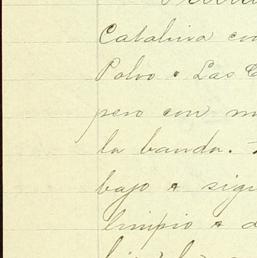 Catalina con
Polvo o Las C
pero con m
la banda.
bajo a sigu
limpio a d